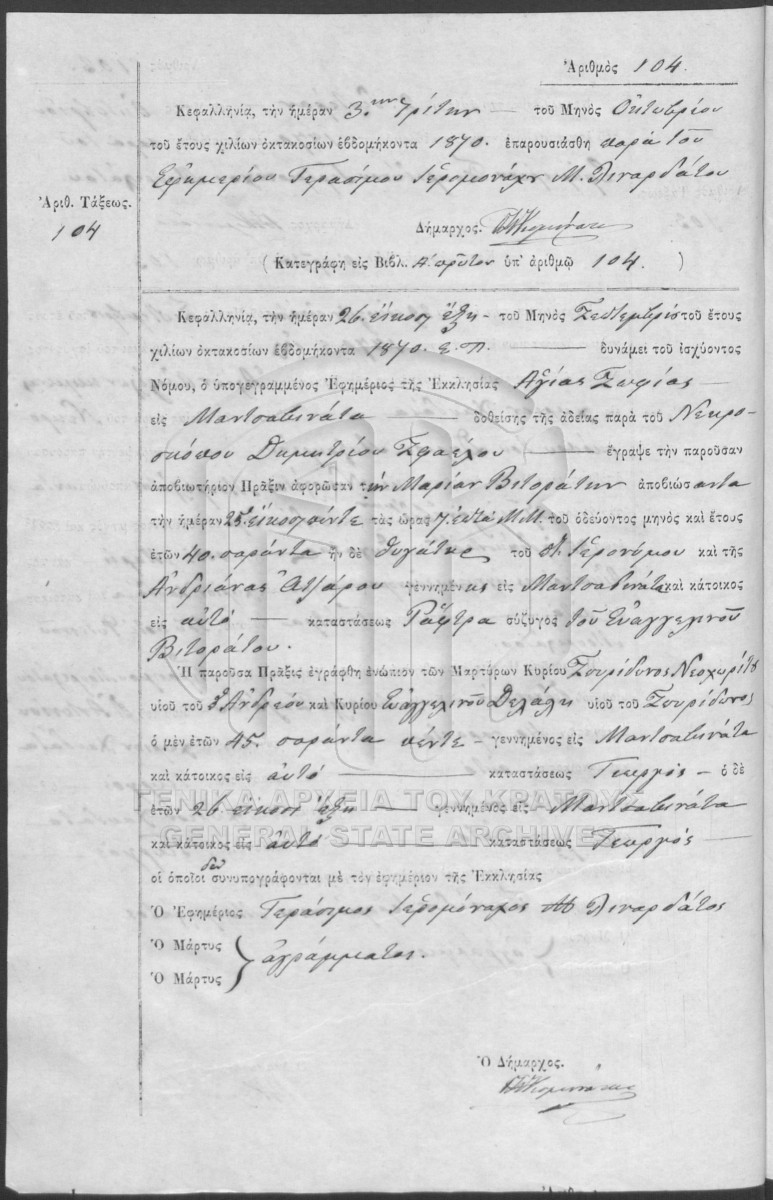 Ἀριθμὸς 104.
Κεφαλληνία, τὴν ἡμέραν 3.ην Τρίτην — τοῦ Μηνὸς Ὀκτωβρίου
τοῦ ἔτους χιλίων ὀκτακοσίων ἑβδομήκοντα 1870. ἐπαρουσιάσθη παρὰ τοῦ
Ἐφημερίου Γερασίμου Ἱερομονάχου Μ. Λιναρδάτου
Ἀριθ. Τάξεως.
104
Δήμαρχος.
( Κατεγράφη εἰς Βιβλ. Α πρῶτον ὑπ' ἀριθμῷ 104. )
Κεφαλληνία, τὴν ἡμέραν 26. εἴκοσι ἕξη - τοῦ Μηνὸς Σεπτεμβρίου τοῦ ἔτους
χιλίων ὀκτακοσίων ἑβδομήκοντα 1870. ε. π. — δυνάμει τοῦ ἰσχύοντος
Νόμου, ὁ ὑπογεγραμμένος Ἐφημέριος τῆς Ἐκκλησίας Ἁγίας Σοφίας —
εἰς Μαντσαβινάτα — δοθείσης τῆς ἀδείας παρὰ τοῦ Νεκρο-
σκόπου Δημητρίου — ἔγραψε τὴν παροῦσαν
ἀποβιωτήριον Πρᾶξιν ἀφορῶσαν τὴν Μαρίαν Βιτοράτην ἀποβιώσαντα
τὴν ἡμέραν 25. εἴκοσι πέντε τὰς ὥρας 7. ἑπτὰ Μ.Μ. τοῦ ὁδεύοντος μηνὸς καὶ ἔτους
ἐτῶν 40. σαράντα ἦν δὲ θυγάτηρ τοῦ Ἱερονύμου καὶ τῆς
Ἀνδριάνας Ἀτζάρου γεννημένης εἰς Μαντσαβινάτα καὶ κάτοικος
εἰς αὐτό — καταστάσεως Ράφτρα σύζυγος τοῦ Εὐαγγελινοῦ
Βιτοράτου.
Ἡ παροῦσα Πρᾶξις ἐγράφθη ἐνώπιον τῶν Μαρτύρων Κυρίου Σπυρίδωνος Νεοχωρίτου
υἱοῦ τοῦ Ἀνδρέου καὶ Κυρίου Εὐαγγελινοῦ Δελάλη υἱοῦ τοῦ Σπυρίδωνος
ὁ μὲν ἐτῶν 45. σαράντα πέντε - γεννημένος εἰς Μαντσαβινάτα
καὶ κάτοικος εἰς αὐτό — καταστάσεως Γεωργός - ὁ δὲ
ἐτῶν 26. εἴκοσι ἕξη — γεννημένος εἰς Μαντσαβινάτα
καὶ κάτοικος εἰς αὐτό — καταστάσεως Γεωργός —
οἱ ὁποῖοι δεν συνυπογράφονται μὲ τὸν ἐφημέριον τῆς Ἐκκλησίας
Ὁ Ἐφημέριος Γεράσιμος Ἱερομόναχος Μ Λιναρδάτος
Ὁ Μάρτυς
ἀγράμματοι.
Ὁ Μάρτυς
Ὁ Δήμαρχος.
ΓΕΝΙΚΑ ΑΡΧΕΙΑ ΤΟΥ ΚΡΑΤΟΥΣ
GENERAL STATE ARCHIVES